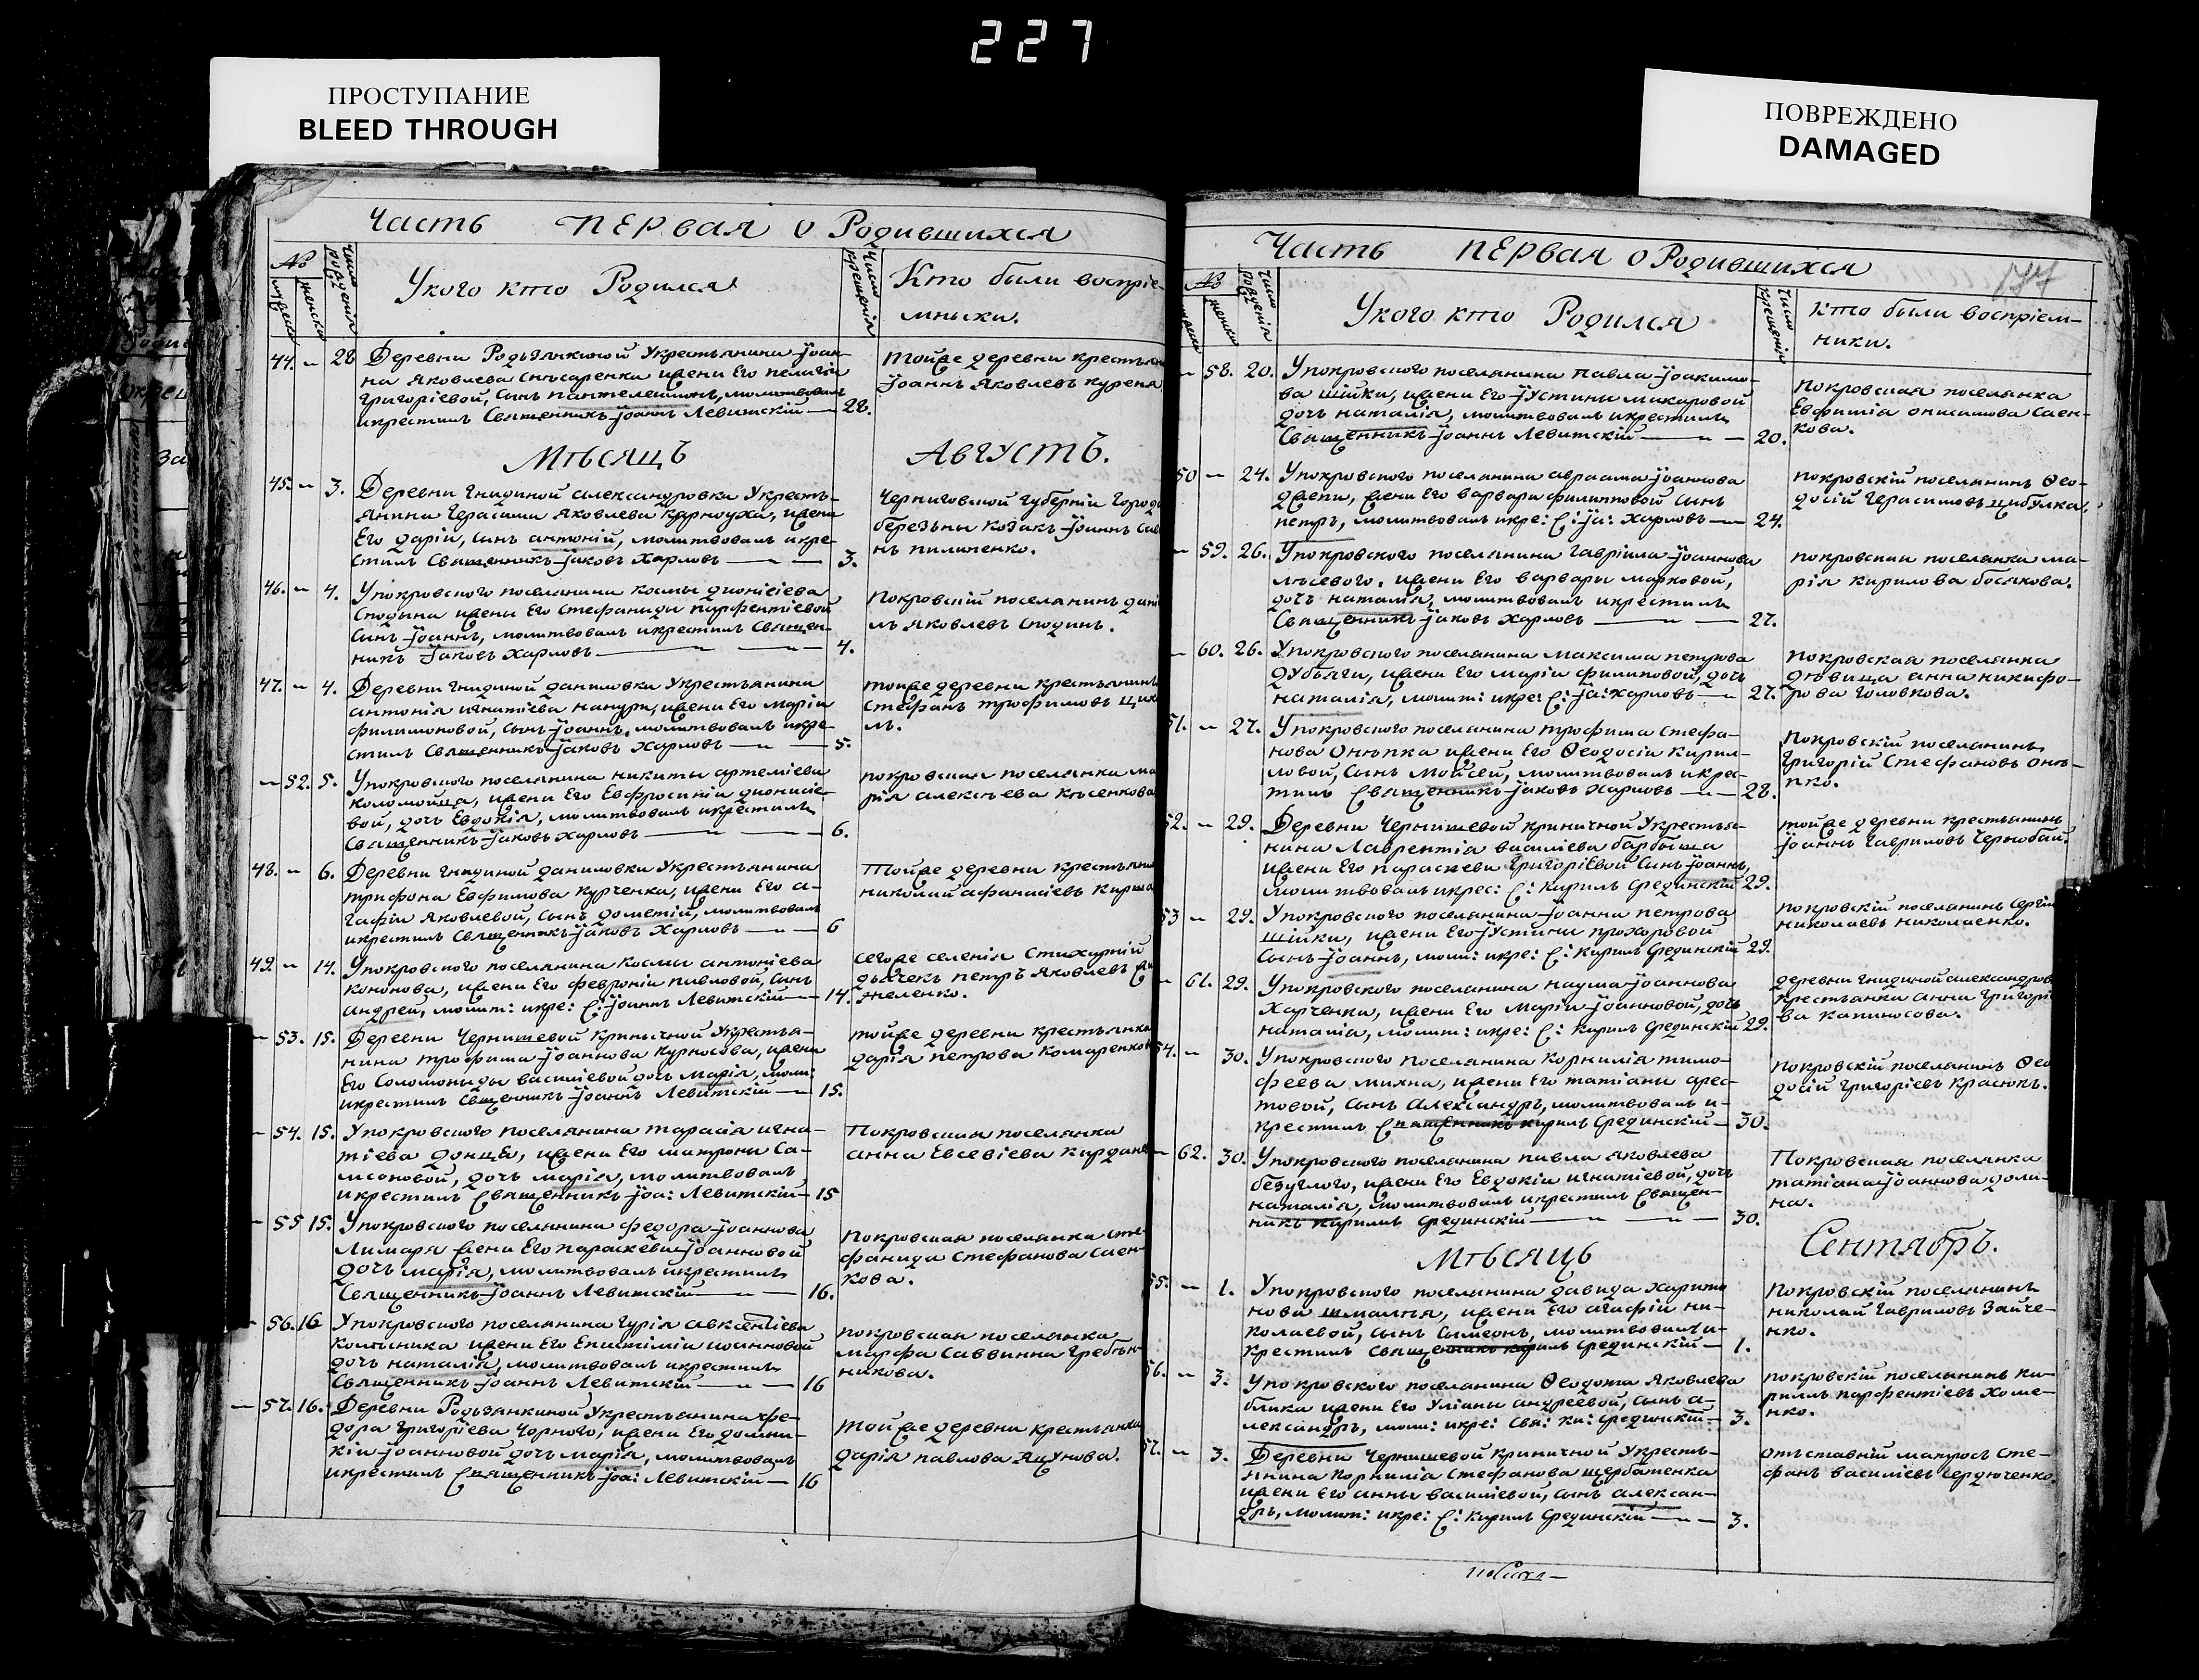 227
ПРОСТУПАНИЕ
BLEED THROUGH
ПОВРЕЖДЕНО
DAMAGED
Часть первая о Родившихся
№
Число рожденія
У кого кто Родился
Число крещенія
Кто были воспріе-
мники.
44. – 28 Деревни Родьзянкиной Укрестьянина Іоан-
на Яковлева Слюсаренка жены Его Пелагіи
Григоріевой, Сынъ Пантелеимонъ, молитвовалъ
икрестилъ Священникъ Іоаннъ Левитскій — 28.
тойже деревни крестьян
Іоаннъ Яковлевъ Курена
Мѣсяцъ Августъ.
45. – 3. Деревни Гнидиной александровки Укресть-
янина Герасима Яковлева Карноуха, жены
Его Дарiи, сынъ антоній, молитвовалъ икре-
стилъ Священникъ Іаковъ Харловъ — 3.
Черниговской Губерніи Города
березьны козакъ Іоаннъ Сав
нъ пилипенко.
46. – 4. Упокровского поселянина космы дионісіева
Сподина жены Его Стефаниды парфентіевой
Сынъ Іоаннъ, молитвовалъ икрестилъ Священ-
никъ Іаковъ Харловъ — 4.
Покровскій поселянинъ дані
лъ Яковлевъ Сподинъ.
47. – 4. Деревни гнидиной даниловки Укрестьянина
антонія игнатіева , жены Его Маріи
филимоновой, сынъ Іоаннъ, молитвовалъ икре-
стилъ Священникъ Іаковъ Харловъ — 5.
тойже деревни крестьянинъ
Стефанъ трофимовъ
– 52. 5. Упокровского поселянина никиты артеміева
коломойца, жены Его Евфросиніи дионисіе-
вой, дочь Евдокія, молитвовалъ икрестилъ
Священникъ Іаковъ Харловъ — 6.
покровская поселянка ма
рія алексѣева
48. – 6. Деревни гнидиной даниловки Укрестьянина
трифона Евфимова Курченка, жены Его а-
гафіи Яковлевой, Сынъ дометій, молитвовалъ
икрестилъ Священникъ Іаковъ Харловъ — 6
Тойже деревни крестьяни
николай афанасіевъ
49. – 14. Упокровского поселянина космы антоніева
кононова, жены Его февроніи павловой, Сынъ
андрей, молит: икре: С: Іоаннъ Левитскій — 14.
сегоже селенія Стихарній
дьячекъ петръ Яковлевъ
– 53. 15. Деревни Чернишевой Криничной Укрестья-
нина трофима Іоаннова Курносова, жены
Его Соломониды василіевой дочь Марія, моли:
икрестилъ Священникъ Іоаннъ Левитскій — 15.
тойже деревни крестьянка
дарія петрова Комаренкова
– 54. 15. Упокровского поселянина тарасія игна-
тіева донца, жены Его матроны Са-
мсоновой, дочь марія, молитвовалъ
икрестилъ Священникъ Іоа: Левитскій — 15
Покровская поселянка
анна Евсевіева
– 55 15. Упокровского поселянина федора Іоаннова
Лимаря жены Его параскевы Іоанновой
дочь марія, молитвовалъ икрестилъ
Священникъ Іоаннъ Левитскій — 16.
покровская поселянка сте-
фанида Стефанова Саен-
кова.
– 56. 16 Упокровского поселянина гурія авксентіева
колесника жены Его Епистиміи иоанновой
дочь наталія, молитвовалъ икрестилъ
Священникъ Іоаннъ Левитскій — 16
покровская поселянка
марфа Саввинна гребен-
никова.
– 57. 16. Деревни Родьзянкиной Укрестьянина Фе-
дора григоріева Чорного, жены Его домни-
кіи Іоанновой дочь марія, молитвовалъ
икрестилъ Священникъ Іоа: Левитскій — 16
тойже деревни крестьянка
дарія павлова Яцунова.
Часть первая о Родившихся
№
Число рожденія
У кого кто Родился
Число крещенія
Кто были воспріем-
ники.
– 58. 20. Упокровского поселянина павла Іоакимо-
ва шійки, жены Его Іустины макаровой
дочь наталія, молитвовалъ икрестилъ
Священникъ Іоаннъ Левитскій — 20.
Покровская поселянка
Евфимія онисимова Саен-
кова.
50 – 24. Упокровского поселянина авраама Іоаннова
жены Его варвары филипповой Сынъ
петръ, молитвовалъ икре: С: Іа: Харловъ — 24.
покровскій поселянинъ Ѳео-
досій Герасимовъ цибулка.
– 59. 26. Упокровского поселянина гавріила Іоаннова
лысевого, жены Его варвары марковой,
дочь наталія, молитвовалъ икрестилъ
Священникъ Іаковъ Харловъ — 27.
покровская поселянка ма-
рія кирилова босякова.
– 60. 26. Упокровского поселянина Максима петрова
дубяги, жены Его маріи филиповой, дочь
наталія, молит: икре: С: Іа: Харловъ — 27.
покровская поселянка
дѣвица анна никифо-
рова головкова.
51. – 27. Упокровского поселянина трофима Стефа-
нова онѣпка жены Его Ѳеодосіи кирил-
ловой, Сынъ Мойсей, молитвовалъ икре-
тилъ Священникъ Іаковъ Харловъ — 28.
Покровскій поселянинъ
григорій Стефановъ онѣ-
пко.
52. – 29. Деревни Чернишевой криничной Укрестья-
нина Лаврентія василіева барбыша
жены Его параскевы Григоріевой Сынъ Іоаннъ,
молитвовалъ икрес: С: Кирилъ Срединскій 29.
тойже деревни крестьянинъ
Іоаннъ Гавриловъ Чернобай.
53 – 29. Упокровского поселянина Іоанна петрова
шійки, жены Его Іустины прохоровой
Сынъ Іоаннъ, моли: икре: С: Кирилъ Срединскій 29.
покровскій поселянинъ Сергій
николаевъ николаенко.
– 61. 29. Упокровского поселянина наума Іоаннова
Харченка, жены Его Маріи Іоанновой, дочь
наталія, молит: икре: С: Кирилъ Срединскій 29.
деревни гнидиной александров
крестьянка анна григорі
ва капиносова.
54. – 30. Упокровского поселянина корнилія тимо-
феева михна, жены Его татіаны арес-
товой, сынъ Александръ, молитвовалъ и-
крестилъ Священникъ кирилъ Срединскій — 30.
покровскій поселянинъ Ѳео
досій григоріевъ Красюкъ.
– 62. 30. Упокровского поселянина павла яковлева
безуглого, жены Его Евдокіи игнатіевой, дочь
наталія, молитвовалъ икрестилъ Священ-
никъ Кирилъ Срединскій — 30.
Покровская поселянка
татіана Іоаннова доли-
на.
Мѣсяцъ Сентябрь.
55. – 1. Упокровского поселянина давида Харито
нова шмалтя, жены Его агафіи ни-
колаевой, сынъ Сымеонъ, молитвовалъ и-
крестилъ Священникъ кирилъ Срединскій — 1.
Покровскій поселянинъ
николай гавриловъ Зайче-
нко.
56. – 3. Упокровского поселянина Ѳеодота Яковлева
блика жены Его Уліаны андреевой, сынъ а-
лександръ, моли: икре: Свя: ки: Срединскій — 3.
покровскій поселянинъ ки-
рилъ парфентіевъ Хоме-
нко.
57. – 3. Деревни Чернишевой Криничной Укресть-
янина корнилія Стефанова щербатенка
жены Его анны василіевой, сынъ алексан-
дръ, молит: икре: С: Кирилъ Срединскій — 3.
отъставній матросъ Сте-
фанъ василіевъ Сердюченко